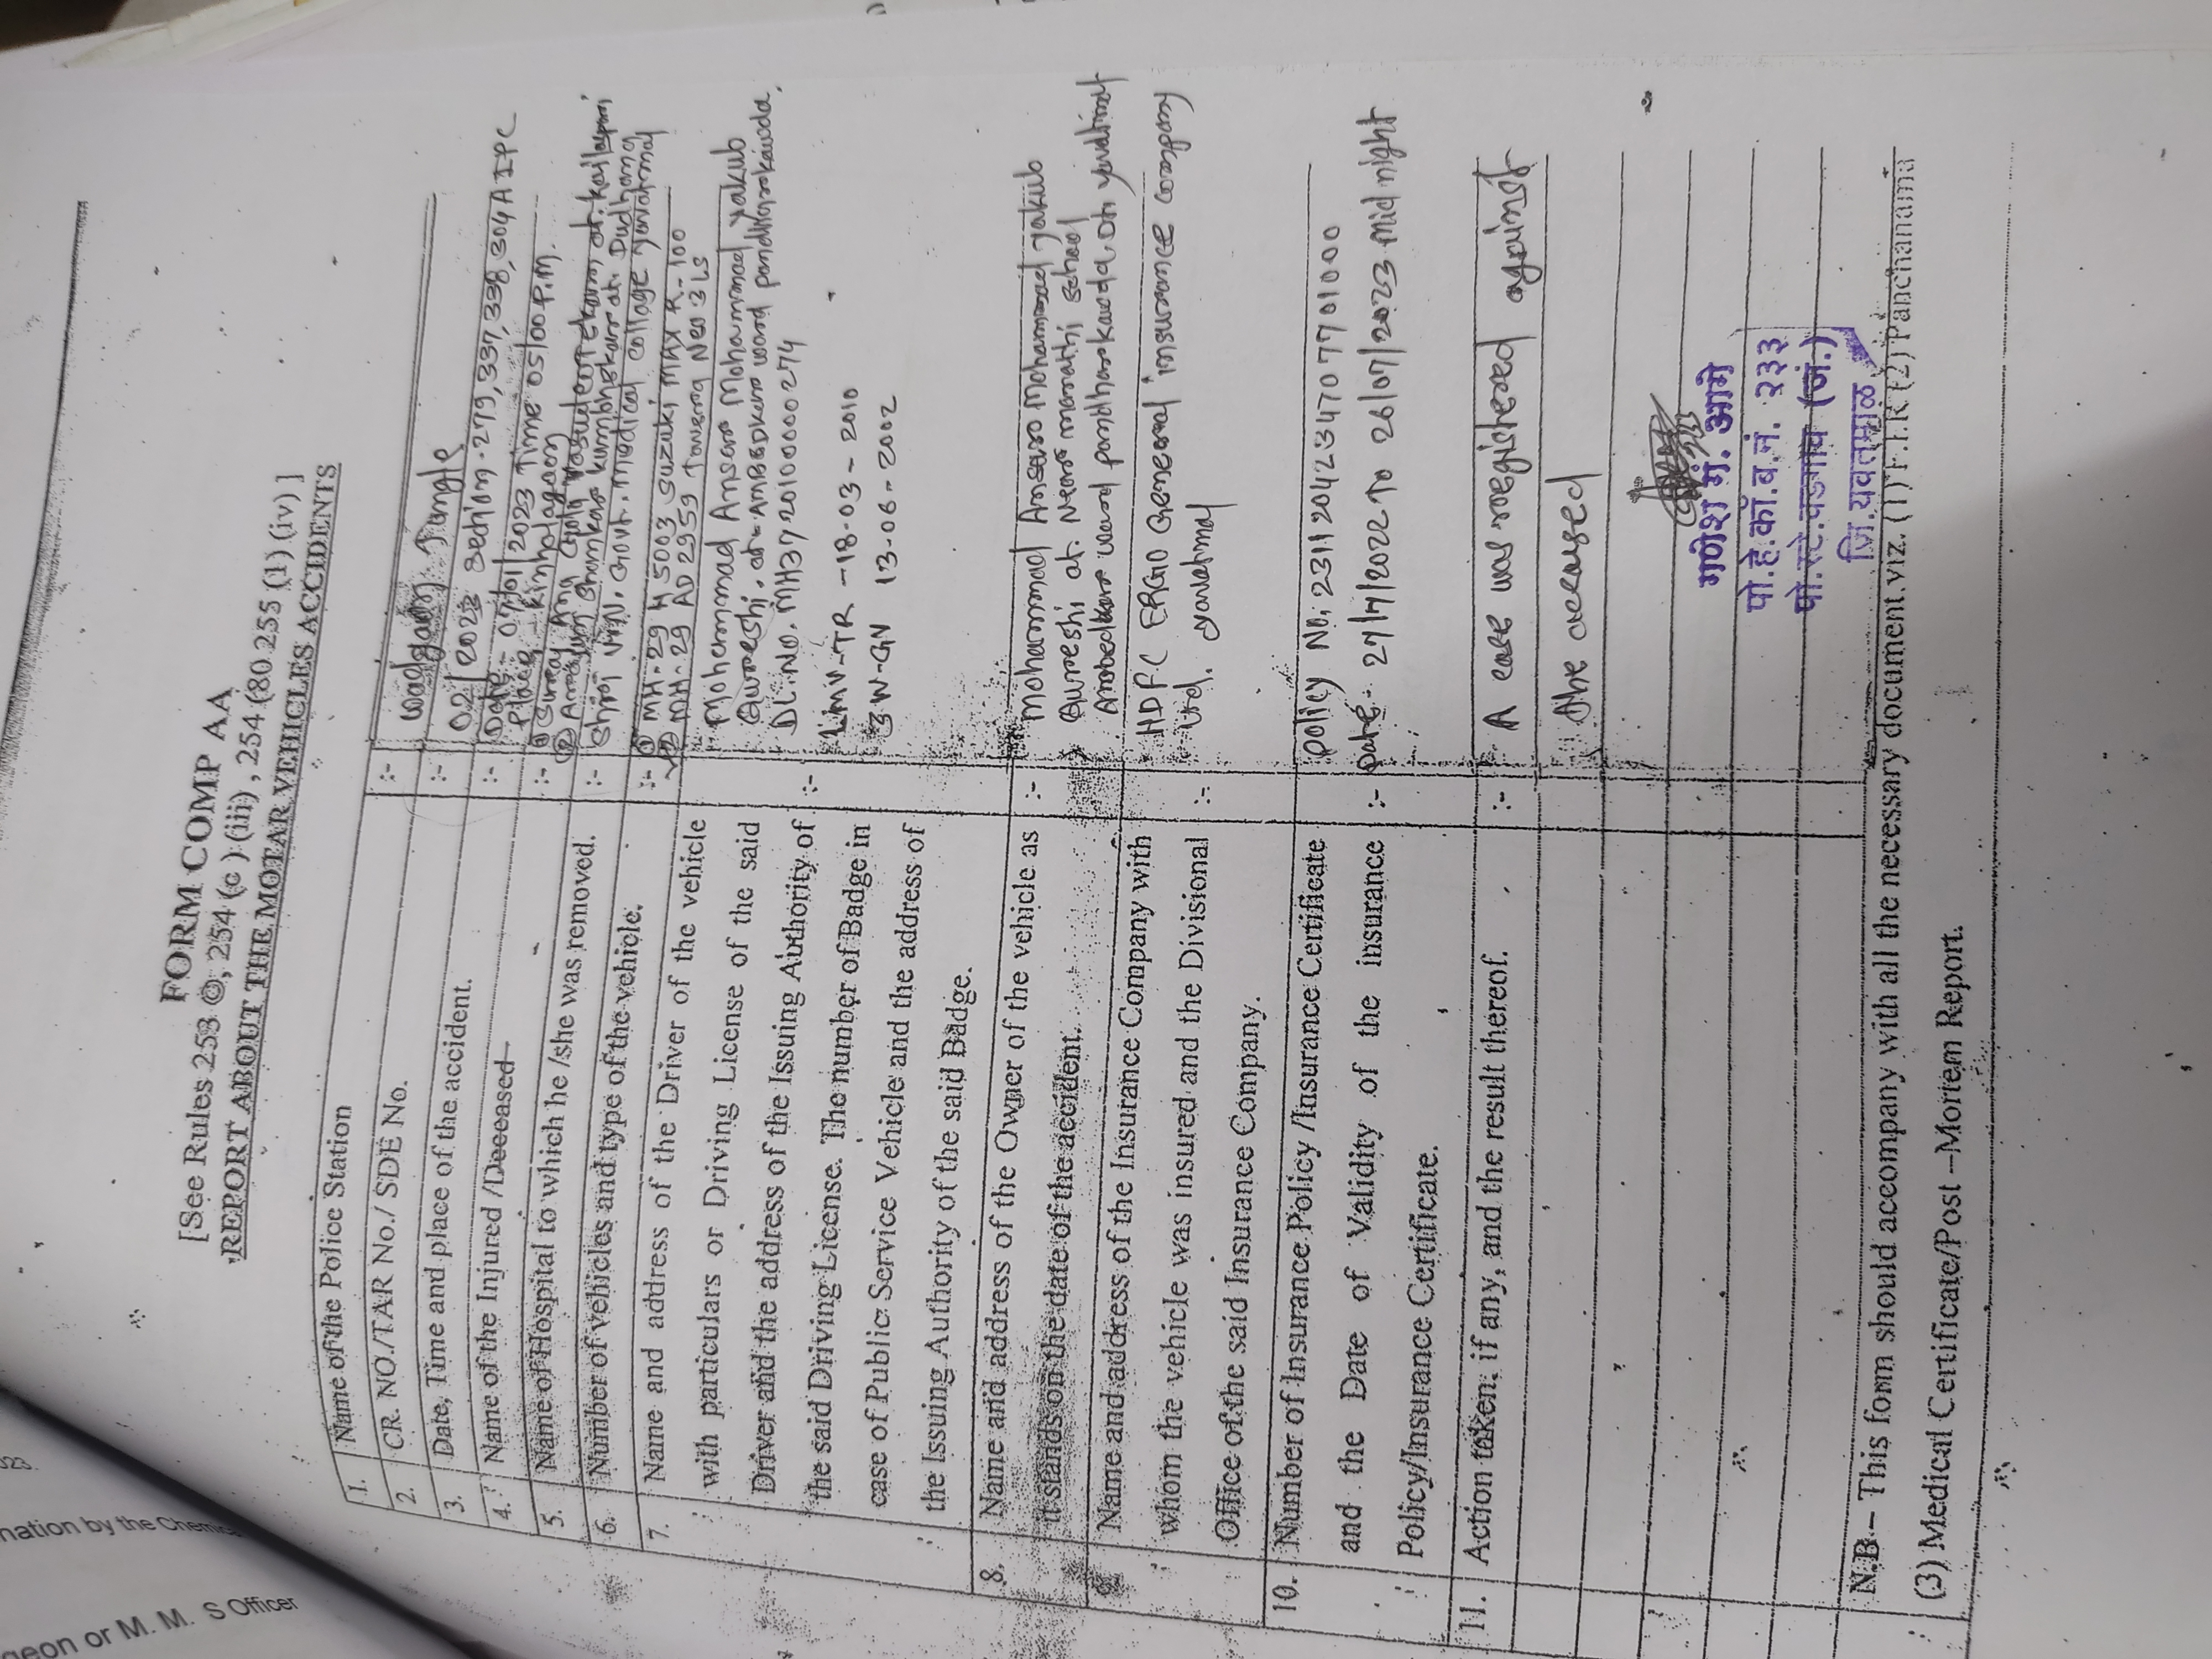 FORM COMP AA
[See Rules 253 ©, 254 (c ) (iii) , 254 (80 255 (1) (iv) ]
REPORT ABOUT THE MOTAR VEHICLES ACCIDENTS
1. Name of the Police Station :- wadgaon Jungle
2. CR. NO./TAR No./ SDE No. :- 02/2023 section-279,337,338,304A IPC
3. Date, Time and place of the accident. :- Date - 07/01/2023 Time 05/00 P.M.
Place - kinhi
4. Name of the Injured /Deceased :- ①
②
5. Name of Hospital to which he /she was removed. :- Shri V.N. Govt. medical collage yavatmal
6. Number of vehicles and type of the vehicle. :- ① MH-29 M 5003 Suzuki MAX R-100
② MH-29 AD 2959 Tavera Neo 3 LS
7. Name and address of the Driver of the vehicle
with particulars or Driving License of the said
Driver and the address of the Issuing Authority of
the said Driving License. The number of Badge in
case of Public Service Vehicle and the address of
the Issuing Authority of the said Badge.
:- Mohammad Ansar Mohammad yakub
Qureshi, at- ward pandharkawda,
DL.No. MH37 20100000274
LMV-TR -18-03-2010
3W-GN 13-06-2002
8. Name and address of the Owner of the vehicle as
it stands on the date of the accident.
:- Mohammad Ansar Mohammad yakub
Qureshi at. Near marathi school
Ambedkar ward pandharkawda. Dt. yavatmal
9. Name and address of the Insurance Company with
whom the vehicle was insured and the Divisional
Office of the said Insurance Company.
:- HDFC ERGO General insurance company
Ltd. yavatmal
10. Number of Insurance Policy /Insurance Certificate
and the Date of Validity of the insurance
Policy/Insurance Certificate.
:- policy No. 2311204234707701000
Date- 27/7/2022 To 26/07/2023 mid night
11. Action taken: if any, and the result thereof. :- A case was registered against
the accused
गणेश गं. आगे
पो.हे.कॉ.ब.नं. २३३
पो.स्टे.वडगाव (जं.)
जि.यवतमाळ
N.B – This form should accompany with all the necessary document.viz. (1) F.I.R (2) Panchanama
(3) Medical Certificate/Post –Mortem Report.
023.
nation by the Chemica
geon or M. M. S Officer